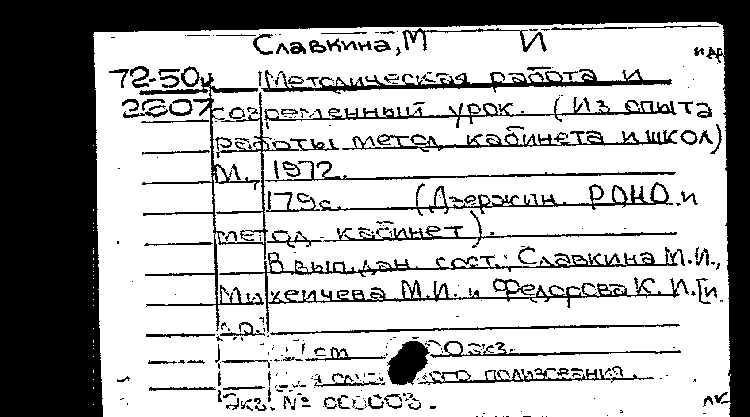 Славкина, М И
и др
72-50ч Методическая работа и
2607 современный урок. (Из опыта
работы метод. кабинета и школ)
М., 1972.
179с. (Дзержин. РОНО и
метод. кабинет).
В вып.дан. сост.: Славкина М.И.,
Михеичева М.И. и Федорова К.И. [и
др.]
см 00 экз.
пользования.
Экз. № 000003.